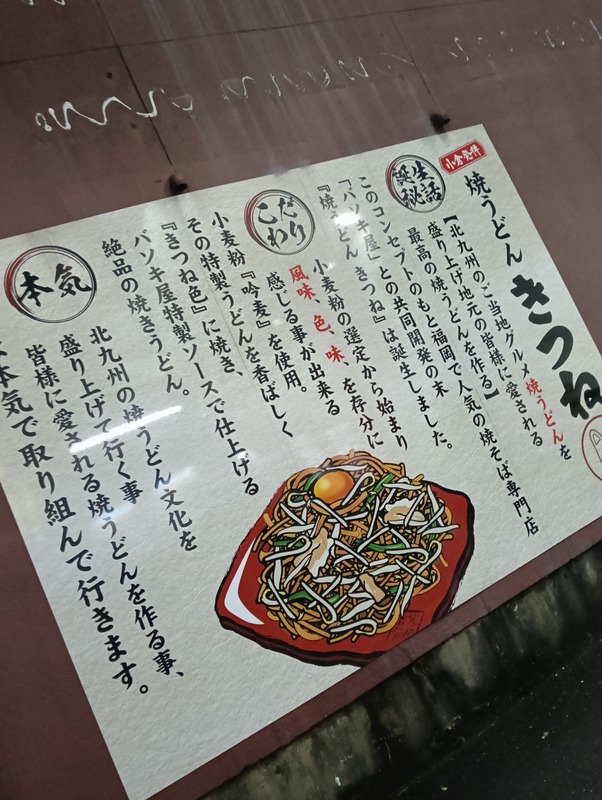 小倉発祥
焼うどん きつね
誕生秘話
【北九州のご当地グルメ焼うどんを
盛り上げ地元の皆様に愛される
最高の焼うどんを作る】
このコンセプトのもと福岡で人気の焼そば専門店
『バソキ屋』との共同開発の末
『焼うどん きつね』は誕生しました。
こだわり
小麦粉の選定から始まり
風味、色、味、を存分に
感じる事が出来る
小麦粉『吟麦』を使用。
その特製うどんを香ばしく
『きつね色』に焼き、
バソキ屋特製ソースで仕上げる
絶品の焼きうどん。
本気
北九州の焼うどん文化を
盛り上げて行く事
皆様に愛される焼うどんを作る事、
本気で取り組んで行きます。